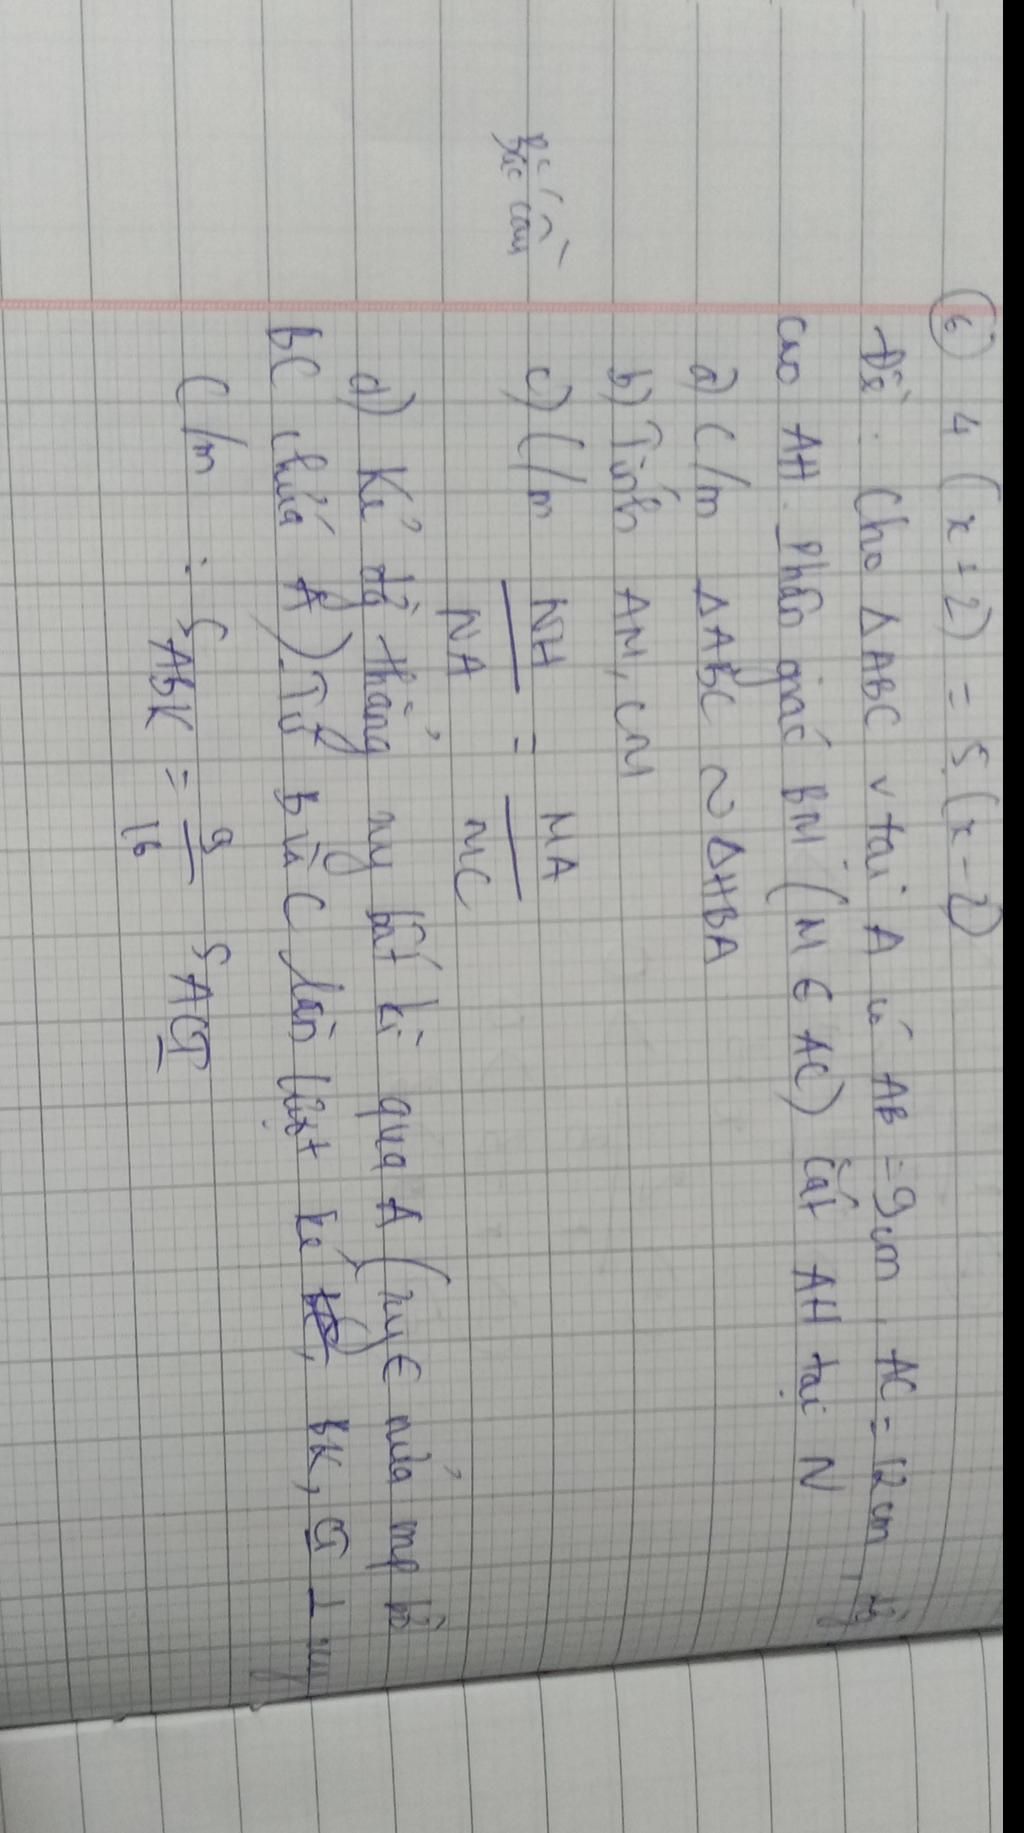 6 4 (x + 2) = 5 (x - 2)
Đề: Cho ΔABC v tại A có AB = 9cm, AC = 12cm, đg
cao AH. Phân giác BM (M ∈ AC) cắt AH tại N
a) C/m ΔABC ~ ΔHBA
b) Tính AM, CM
Bắc cầu
c) C/m NH/NA = MA/MC
d) Kẻ đg thẳng xy bất kì qua A (xy ∈ nửa mp bờ
BC chứa A). Từ B và C lần lượt kẻ BK, CI ⊥ xy
C/m : S ABK = 9/16 S ACI